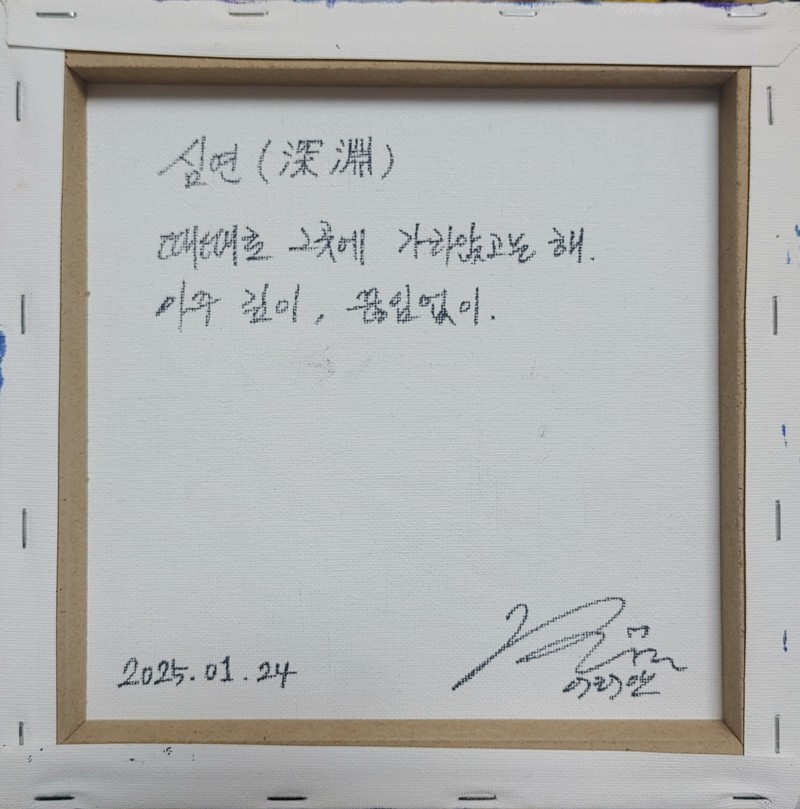 심연 (深淵)
때때로 그곳에 가라앉고는 해.
아주 깊이, 끊임없이.
2025.01.24